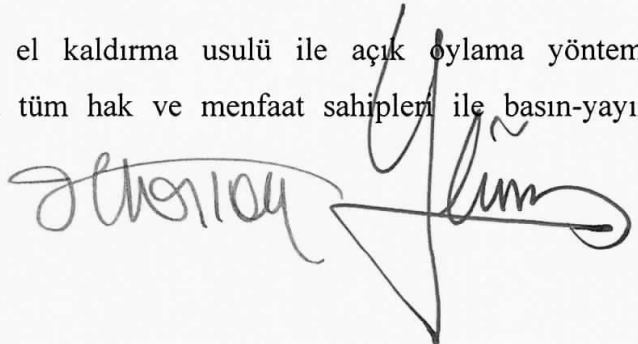 el kaldırma usulü ile açık oylama yöntem
tüm hak ve menfaat sahipleri ile basın-yayı